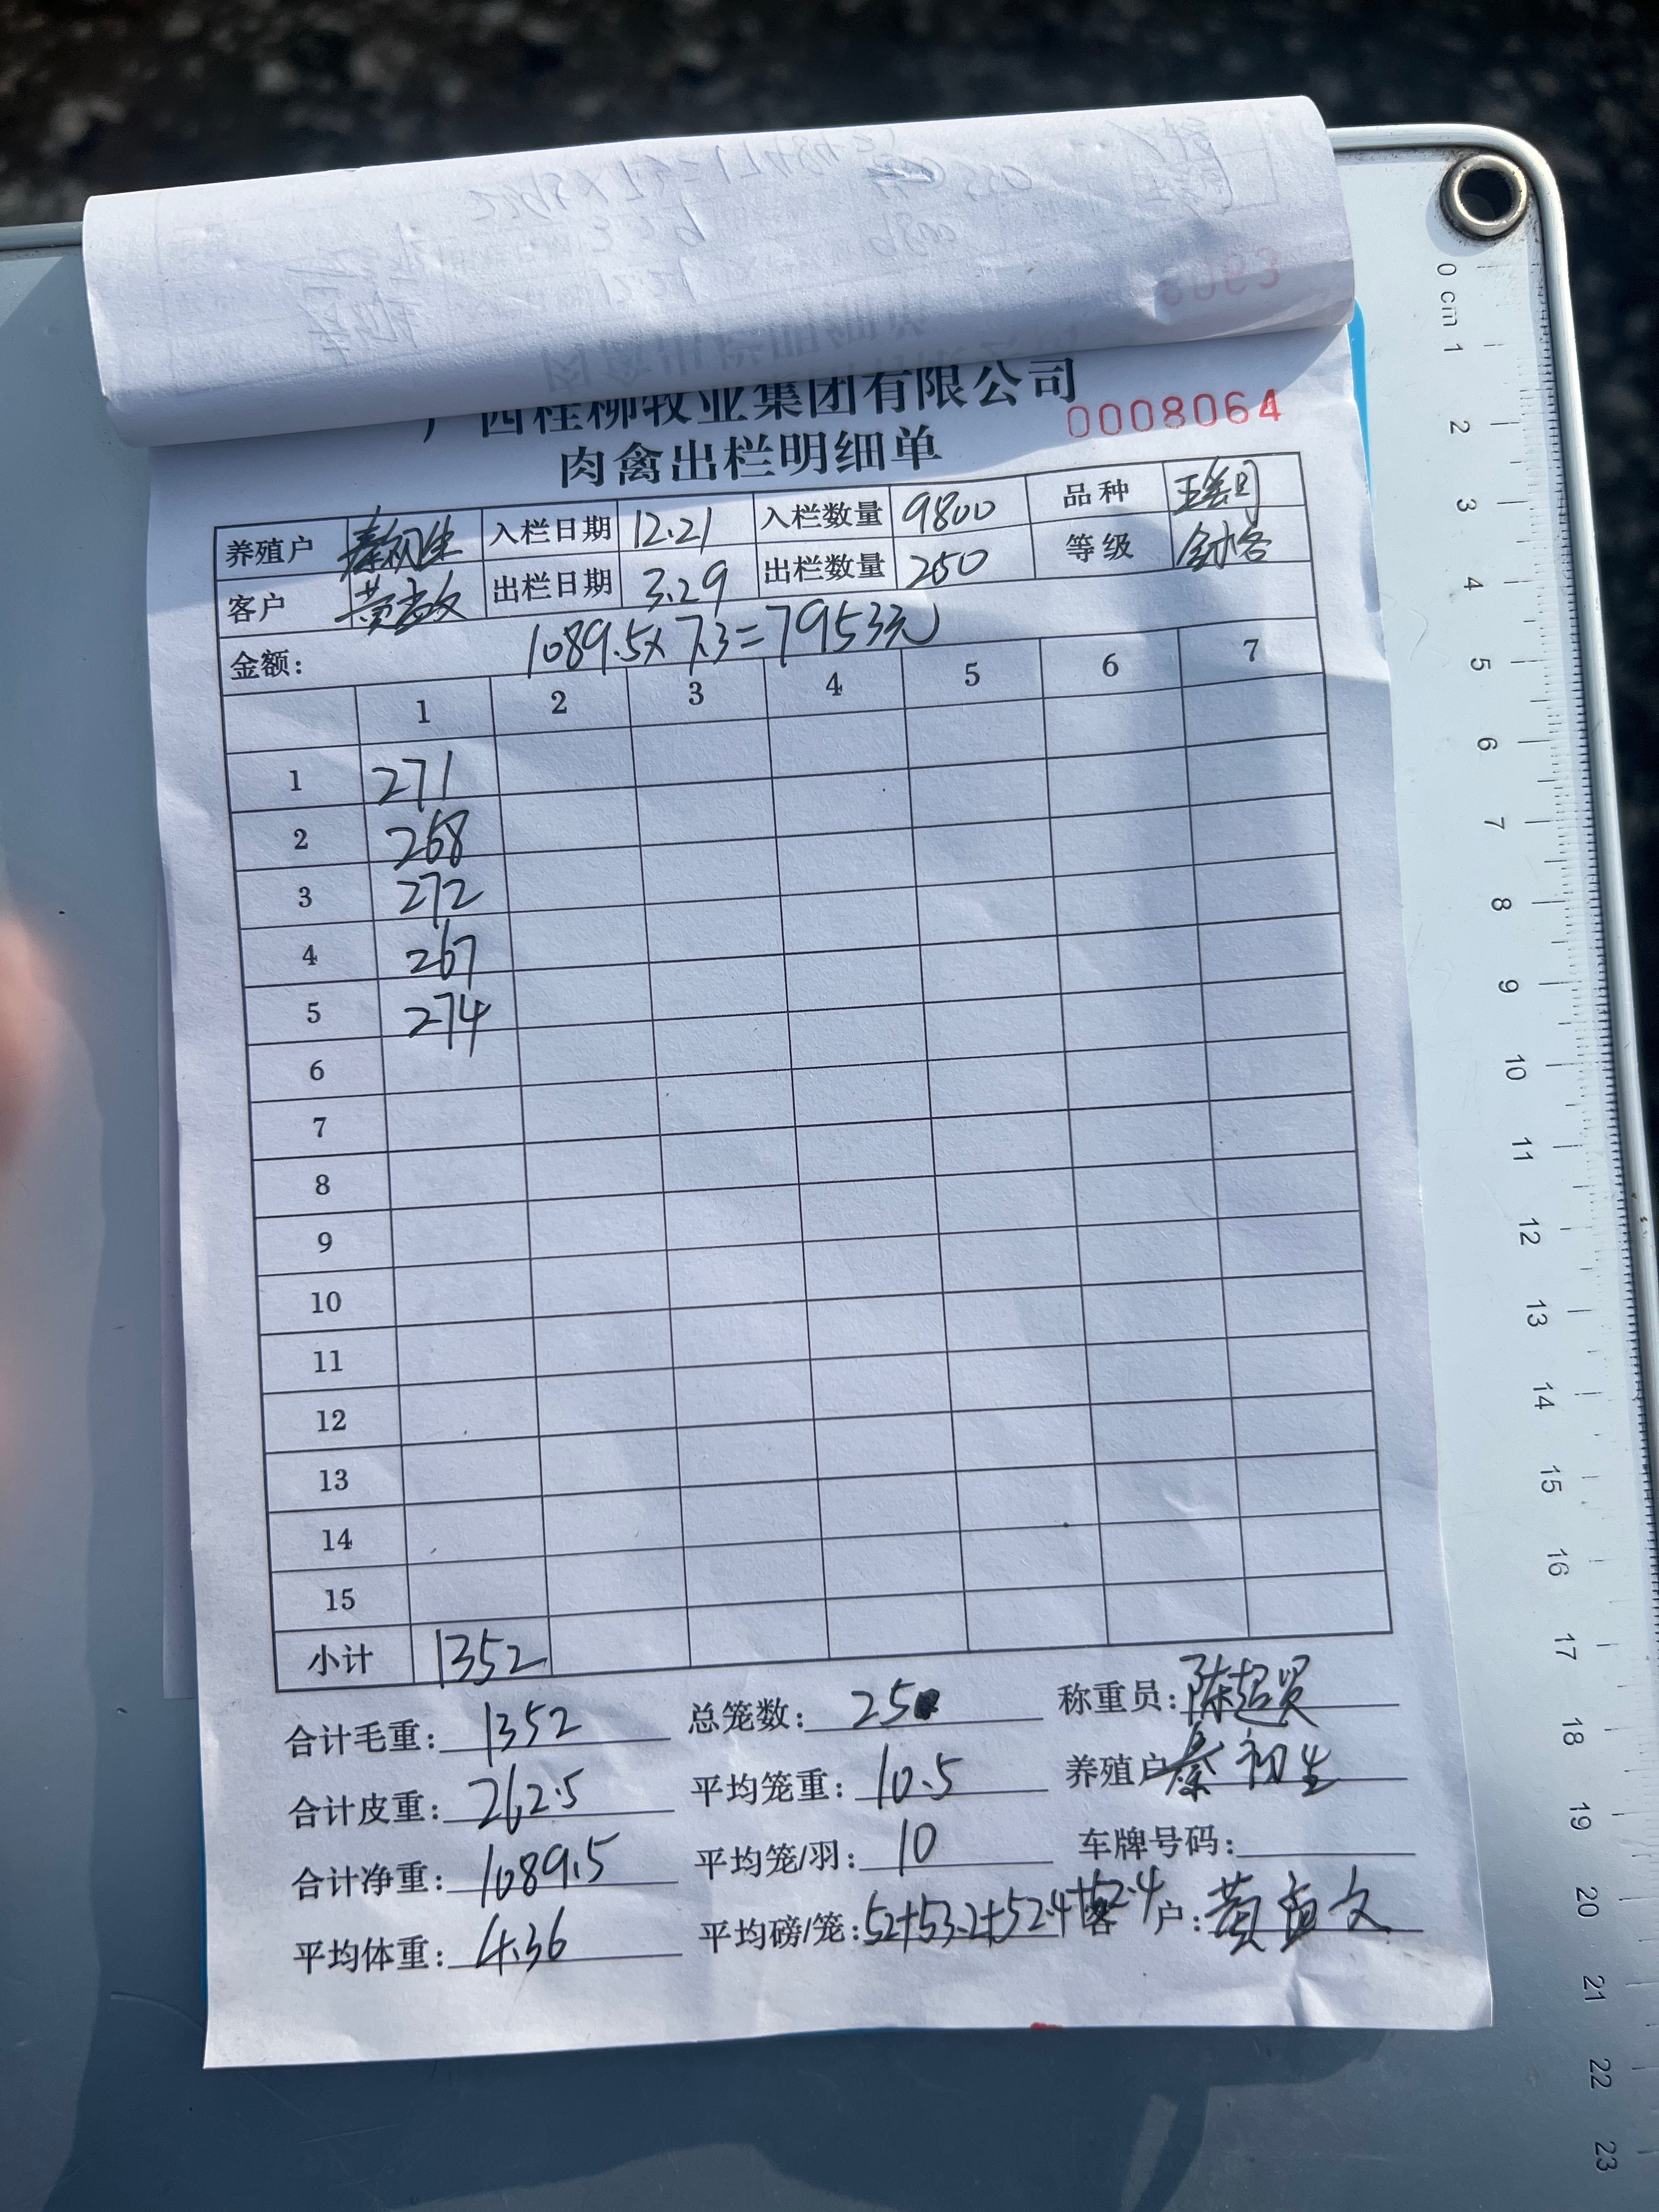 广西桂柳牧业集团有限公司
0008064
肉禽出栏明细单
养殖户 秦初生 入栏日期 12.21 入栏数量 9800 品种
客户 黄志文 出栏日期 3.29 出栏数量 250 等级
金额: 1089.5×7.3=7953元
1 2 3 4 5 6 7
1 271
2 268
3 272
4 267
5 274
6
7
8
9
10
11
12
13
14
15
小计 1352
合计毛重: 1352 总笼数: 25 称重员: 陈超贤
合计皮重: 262.5 平均笼重: 10.5 养殖户 秦初生
合计净重: 1089.5 平均笼/羽: 10 车牌号码:
平均体重: 4.36 平均磅/笼: 52+53.2+52.4+52.4 客户: 黄志文
0 cm 1 2 3 4 5 6 7 8 9 10 11 12 13 14 15 16 17 18 19 20 21 22 23